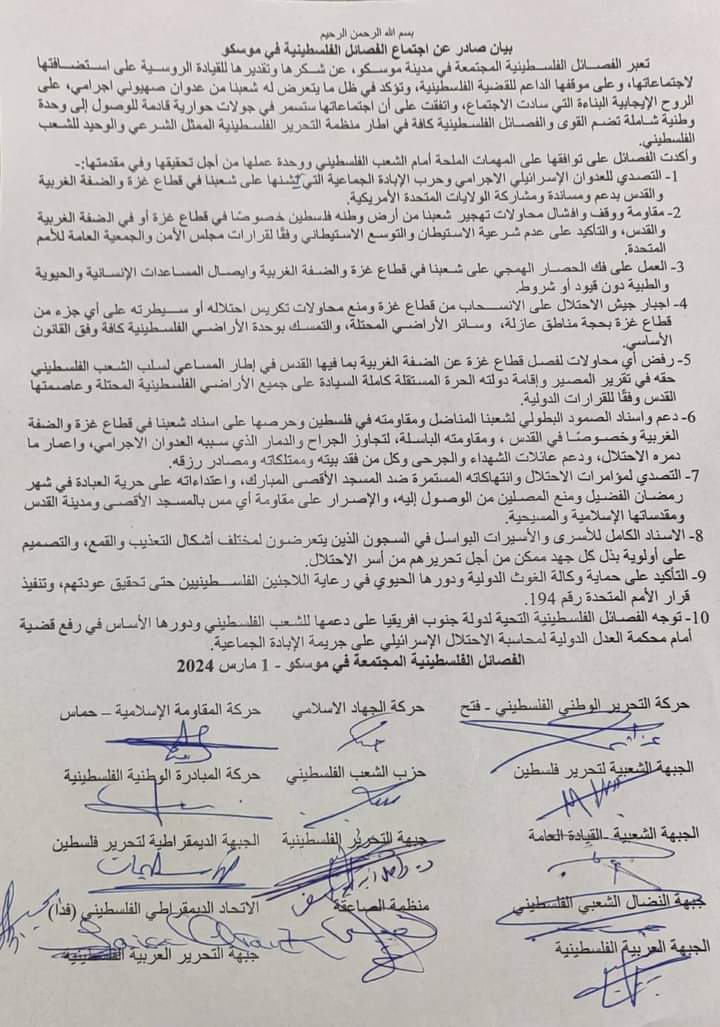 بسم الله الرحمن الرحيم
بيان صادر عن اجتماع الفصائل الفلسطينية في موسكو
تعبر الفصائل الفلسطينية المجتمعة في مدينة موسكو، عن شكرها وتقديرها للقيادة الروسية على استضافتها
لاجتماعاتها، وعلى موقفها الداعم للقضية الفلسطينية، وتؤكد في ظل ما يتعرض له شعبنا من عدوان صهيوني اجرامي، على
الروح الإيجابية البناءة التي سادت الاجتماع، واتفقت على أن اجتماعاتها ستسمر في جولات حوارية قادمة للوصول إلى وحدة
وطنية شاملة تضم القوى والفصائل الفلسطينية كافة في اطار منظمة التحرير الفلسطينية الممثل الشرعي والوحيد للشعب
الفلسطيني.
وأكدت الفصائل على توافقها على المهمات الملحة أمام الشعب الفلسطيني ووحدة عملها من أجل تحقيقها وفي مقدمتها:-
1- التصدي للعدوان الإسرائيلي الاجرامي وحرب الإبادة الجماعية التي تشنها على شعبنا في قطاع غزة والضفة الغربية
والقدس بدعم ومساندة ومشاركة الولايات المتحدة الأمريكية.
2- مقاومة ووقف وافشال محاولات تهجير شعبنا من أرض وطنه فلسطين خصوصًا في قطاع غزة أو في الضفة الغربية
والقدس، والتأكيد على عدم شرعية الاستيطان والتوسع الاستيطاني وفقًا لقرارات مجلس الأمن والجمعية العامة للأمم
المتحدة.
3- العمل على فك الحصار الهمجي على شعبنا في قطاع غزة والضفة الغربية وايصال المساعدات الإنسانية والحيوية
والطبية دون قيود أو شروط.
4- اجبار جيش الاحتلال على الانسحاب من قطاع غزة ومنع محاولات تكريس احتلاله أو سيطرته على أي جزء من
قطاع غزة بحجة مناطق عازلة، وسائر الأراضي المحتلة، والتمسك بوحدة الأراضي الفلسطينية كافة وفق القانون
الأساسي.
5- رفض أي محاولات لفصل قطاع غزة عن الضفة الغربية بما فيها القدس في إطار المساعي لسلب الشعب الفلسطيني
حقه في تقرير المصير وإقامة دولته الحرة المستقلة كاملة السيادة على جميع الأراضي الفلسطينية المحتلة وعاصمتها
القدس وفقًا للقرارات الدولية.
6- دعم واسناد الصمود البطولي لشعبنا المناضل ومقاومته في فلسطين وحرصها على اسناد شعبنا في قطاع غزة والضفة
الغربية وخصوصًا في القدس ، ومقاومته الباسلة، لتجاوز الجراح والدمار الذي سببه العدوان الاجرامي، واعمار ما
دمره الاحتلال، ودعم عائلات الشهداء والجرحى وكل من فقد بيته وممتلكاته ومصادر رزقه.
7- التصدي لمؤامرات الاحتلال وانتهاكاته المستمرة ضد المسجد الأقصى المبارك، واعتداءاته على حرية العبادة في شهر
رمضان الفضيل ومنع المصلين من الوصول إليه، والإصرار على مقاومة أي مس بالمسجد الأقصى ومدينة القدس
ومقدساتها الإسلامية والمسيحية.
8- الاسناد الكامل للأسرى والأسيرات البواسل في السجون الذين يتعرضون لمختلف أشكال التعذيب والقمع، والتصميم
على أولوية بذل كل جهد ممكن من أجل تحريرهم من أسر الاحتلال.
9- التأكيد على حماية وكالة الغوث الدولية ودورها الحيوي في رعاية اللاجئين الفلسطينيين حتى تحقيق عودتهم، وتنفيذ
قرار الأمم المتحدة رقم 194.
10- توجه الفصائل الفلسطينية التحية لدولة جنوب افريقيا على دعمها للشعب الفلسطيني ودورها الأساس في رفع قضية
أمام محكمة العدل الدولية لمحاسبة الاحتلال الإسرائيلي على جريمة الإبادة الجماعية.
الفصائل الفلسطينية المجتمعة في موسكو - 1 مارس 2024
حركة التحرير الوطني الفلسطيني - فتح حركة الجهاد الاسلامي حركة المقاومة الإسلامية – حماس
الجبهة الشعبية لتحرير فلسطين حزب الشعب الفلسطيني حركة المبادرة الوطنية الفلسطينية
الجبهة الشعبية -القيادة العامة جبهة التحرير الفلسطينية الجبهة الديمقراطية لتحرير فلسطين
جبهة النضال الشعبي الفلسطيني منظمة الصاعقة الاتحاد الديمقراطي الفلسطيني (فدا)
الجبهة العربية الفلسطينية جبهة التحرير العربية الفلسطينية